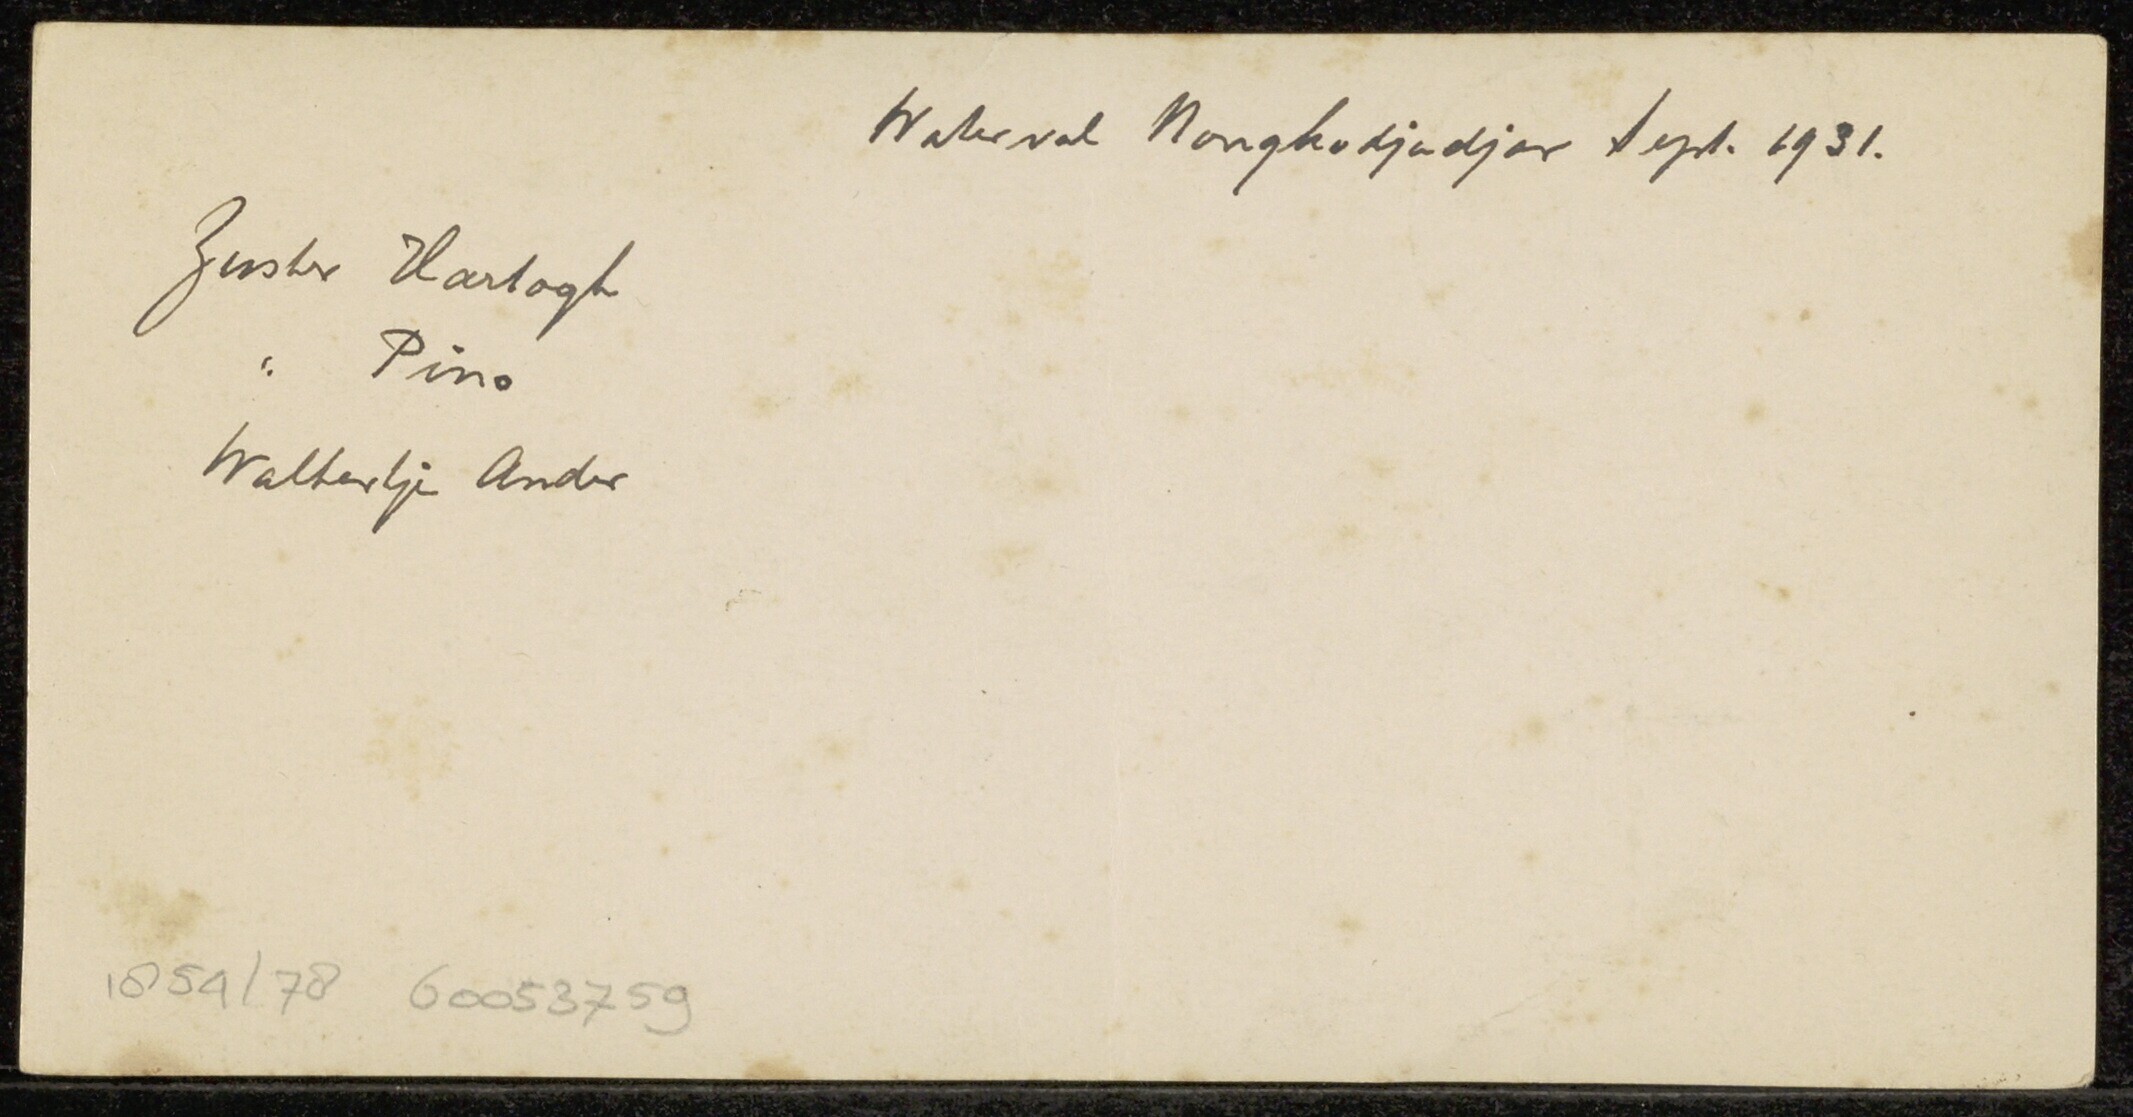 Waterval Nongkodjadjar Sept. 1931.
Zuster Hartogh
" Pino
Waltertje Ander
1854/78 60053759